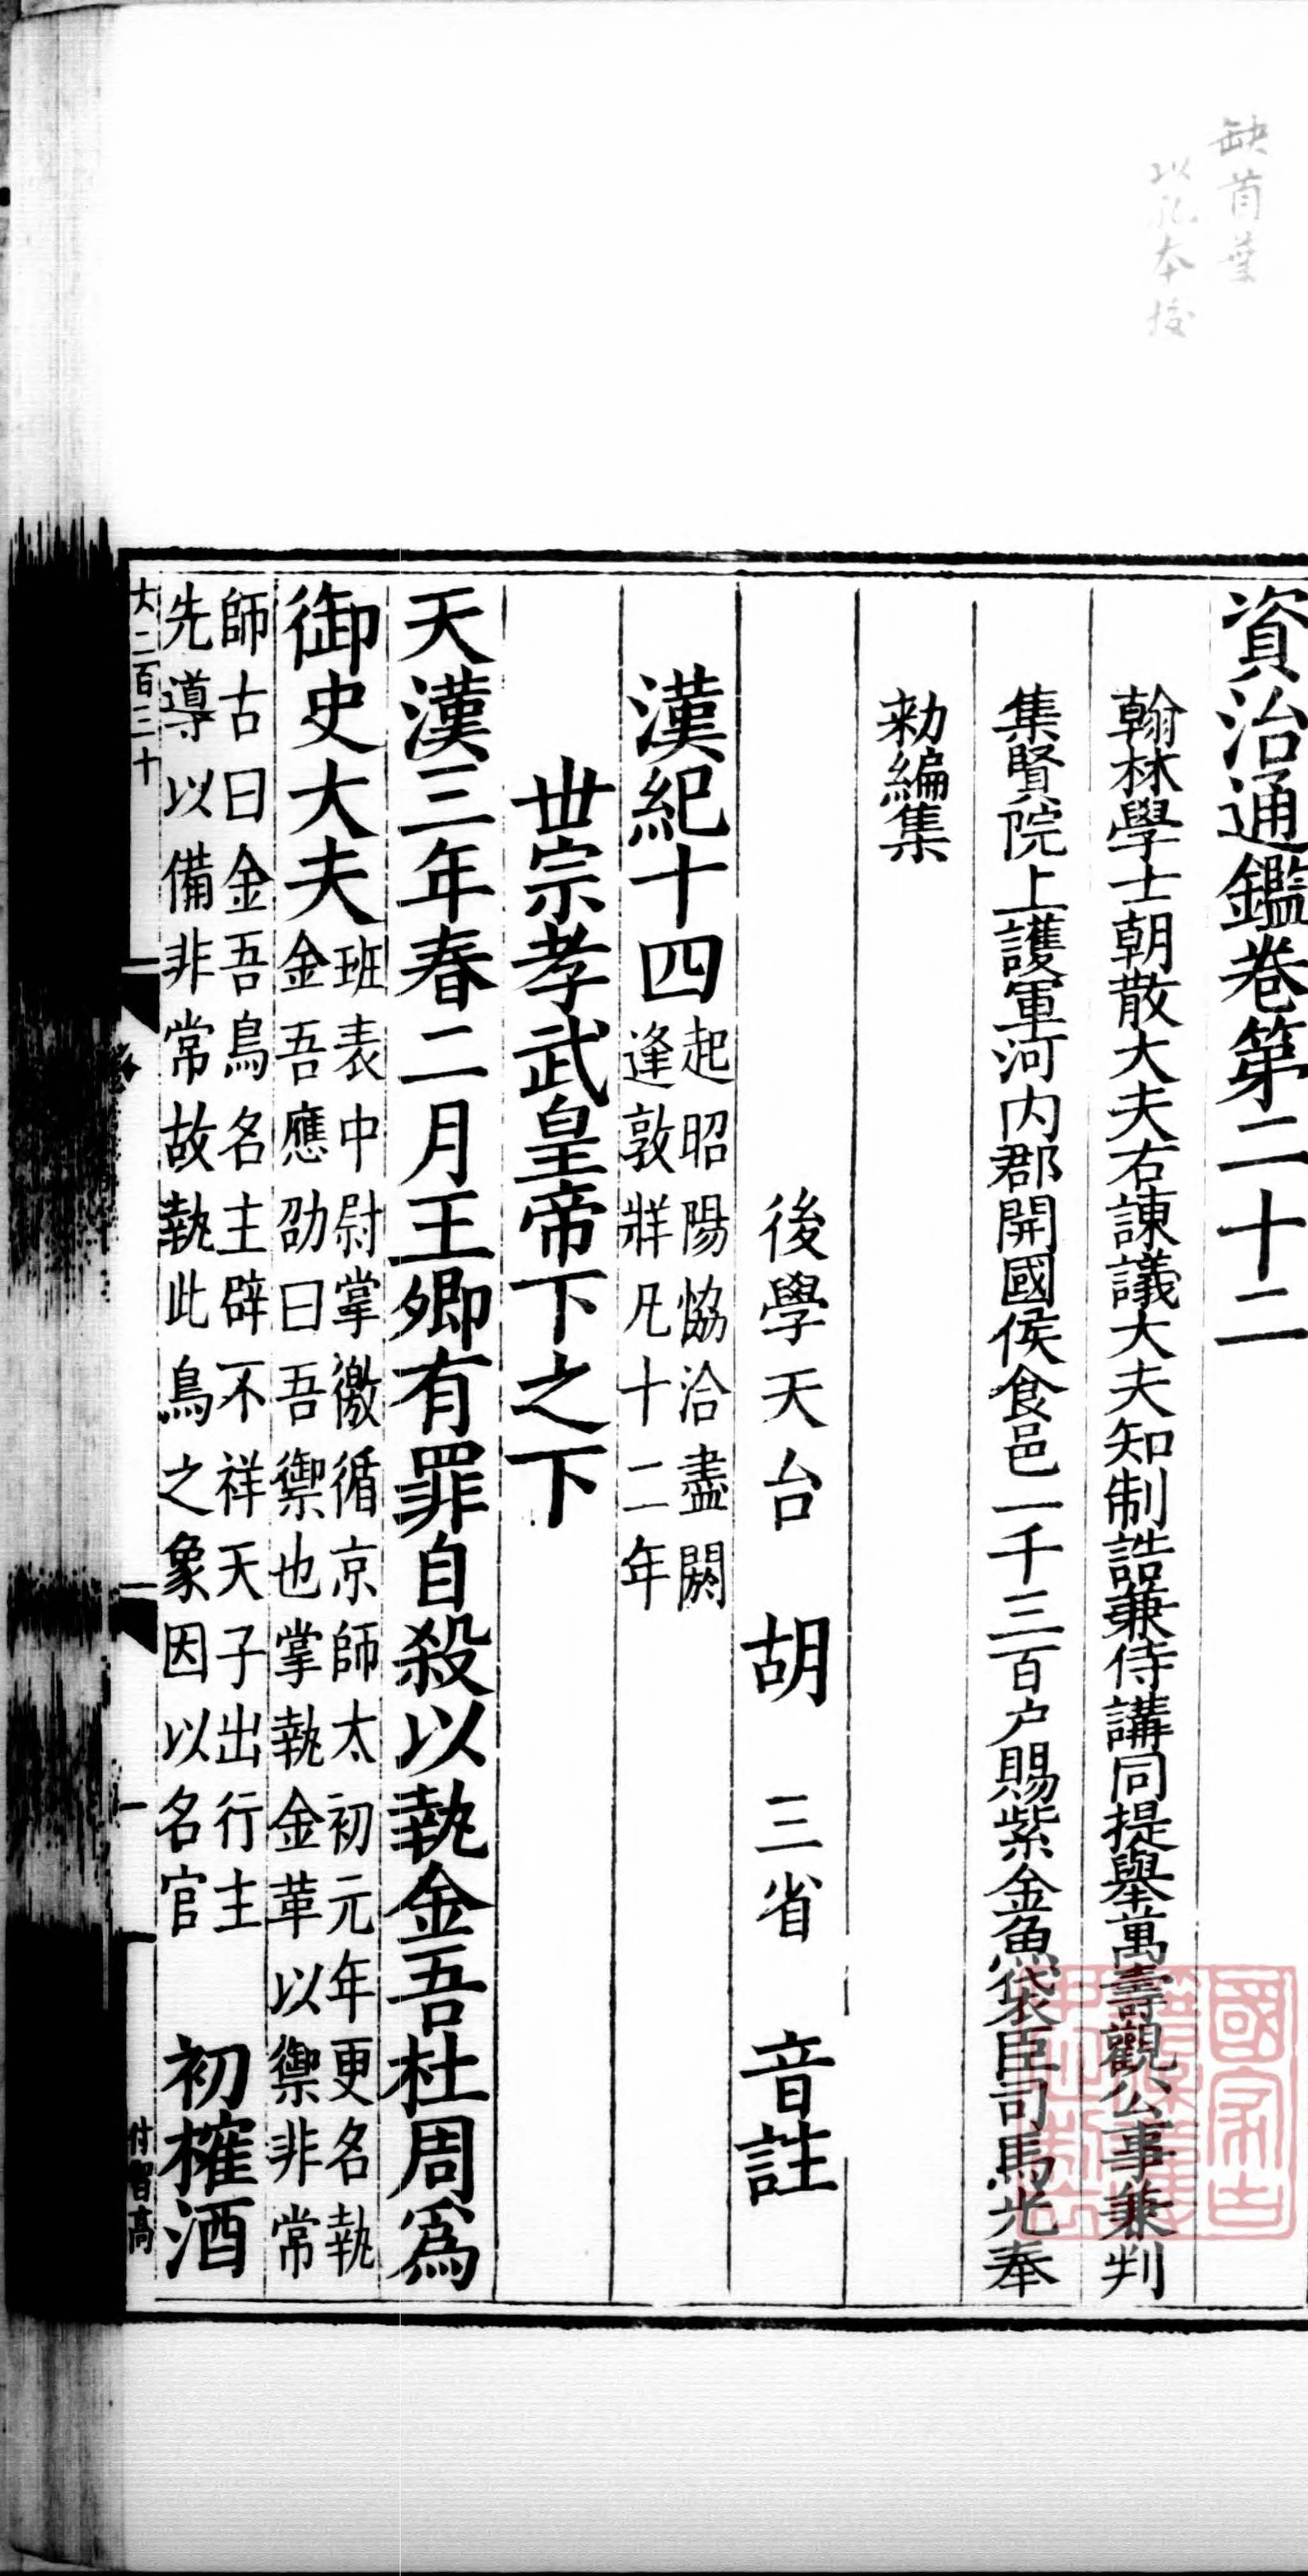 缺首葉
以孔本校
資治通鑑卷第二十二
翰林學士朝散大夫右諫議大夫知制誥兼侍講同提舉萬壽觀公事兼判
集賢院上護軍河内郡開國侯食邑一千三百户賜紫金魚袋臣司馬光奉
勑編集
後學天台胡三省音註
漢紀十四起昭陽協洽盡閼
逢敦牂凡十二年
丗宗孝武皇帝下之下
天漢三年春二月王卿有罪自殺以執金吾杜周爲
御史大夫班表中尉掌徼循京師太初元年更名執
金吾應劭曰吾禦也掌執金革以禦非常
師古曰金吾鳥名主辟不祥天子出行主
先導以備非常故執此鳥之象因以名官初榷酒
大二百三十
一
付智高